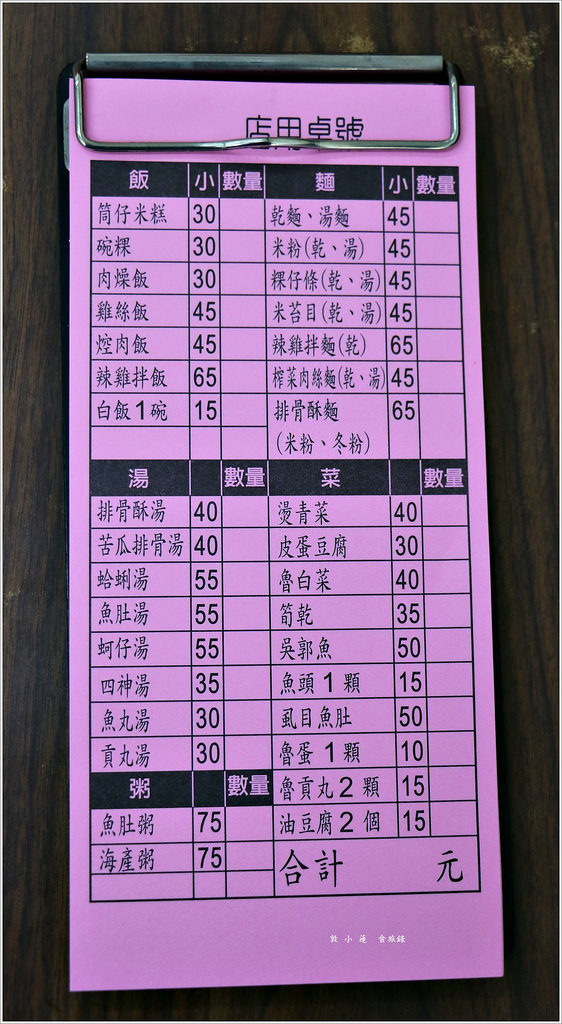 店用桌號
飯 小 數量 麵 小 數量
筒仔米糕 30 乾麵、湯麵 45
碗粿 30 米粉(乾、湯) 45
肉燥飯 30 粿仔條(乾、湯) 45
雞絲飯 45 米苔目(乾、湯) 45
焢肉飯 45 辣雞拌麵(乾) 65
辣雞拌飯 65 榨菜肉絲麵(乾、湯) 45
白飯1碗 15 排骨酥麵 65
(米粉、冬粉)
湯 數量 菜 數量
排骨酥湯 40 燙青菜 40
苦瓜排骨湯 40 皮蛋豆腐 30
蛤蜊湯 55 魯白菜 40
魚肚湯 55 筍乾 35
蚵仔湯 55 吳郭魚 50
四神湯 35 魚頭1顆 15
魚丸湯 30 虱目魚肚 50
貢丸湯 30 魯蛋1顆 10
粥 數量 魯貢丸2顆 15
魚肚粥 75 油豆腐2個 15
海產粥 75 合計 元
敦小蓮 食旅錄